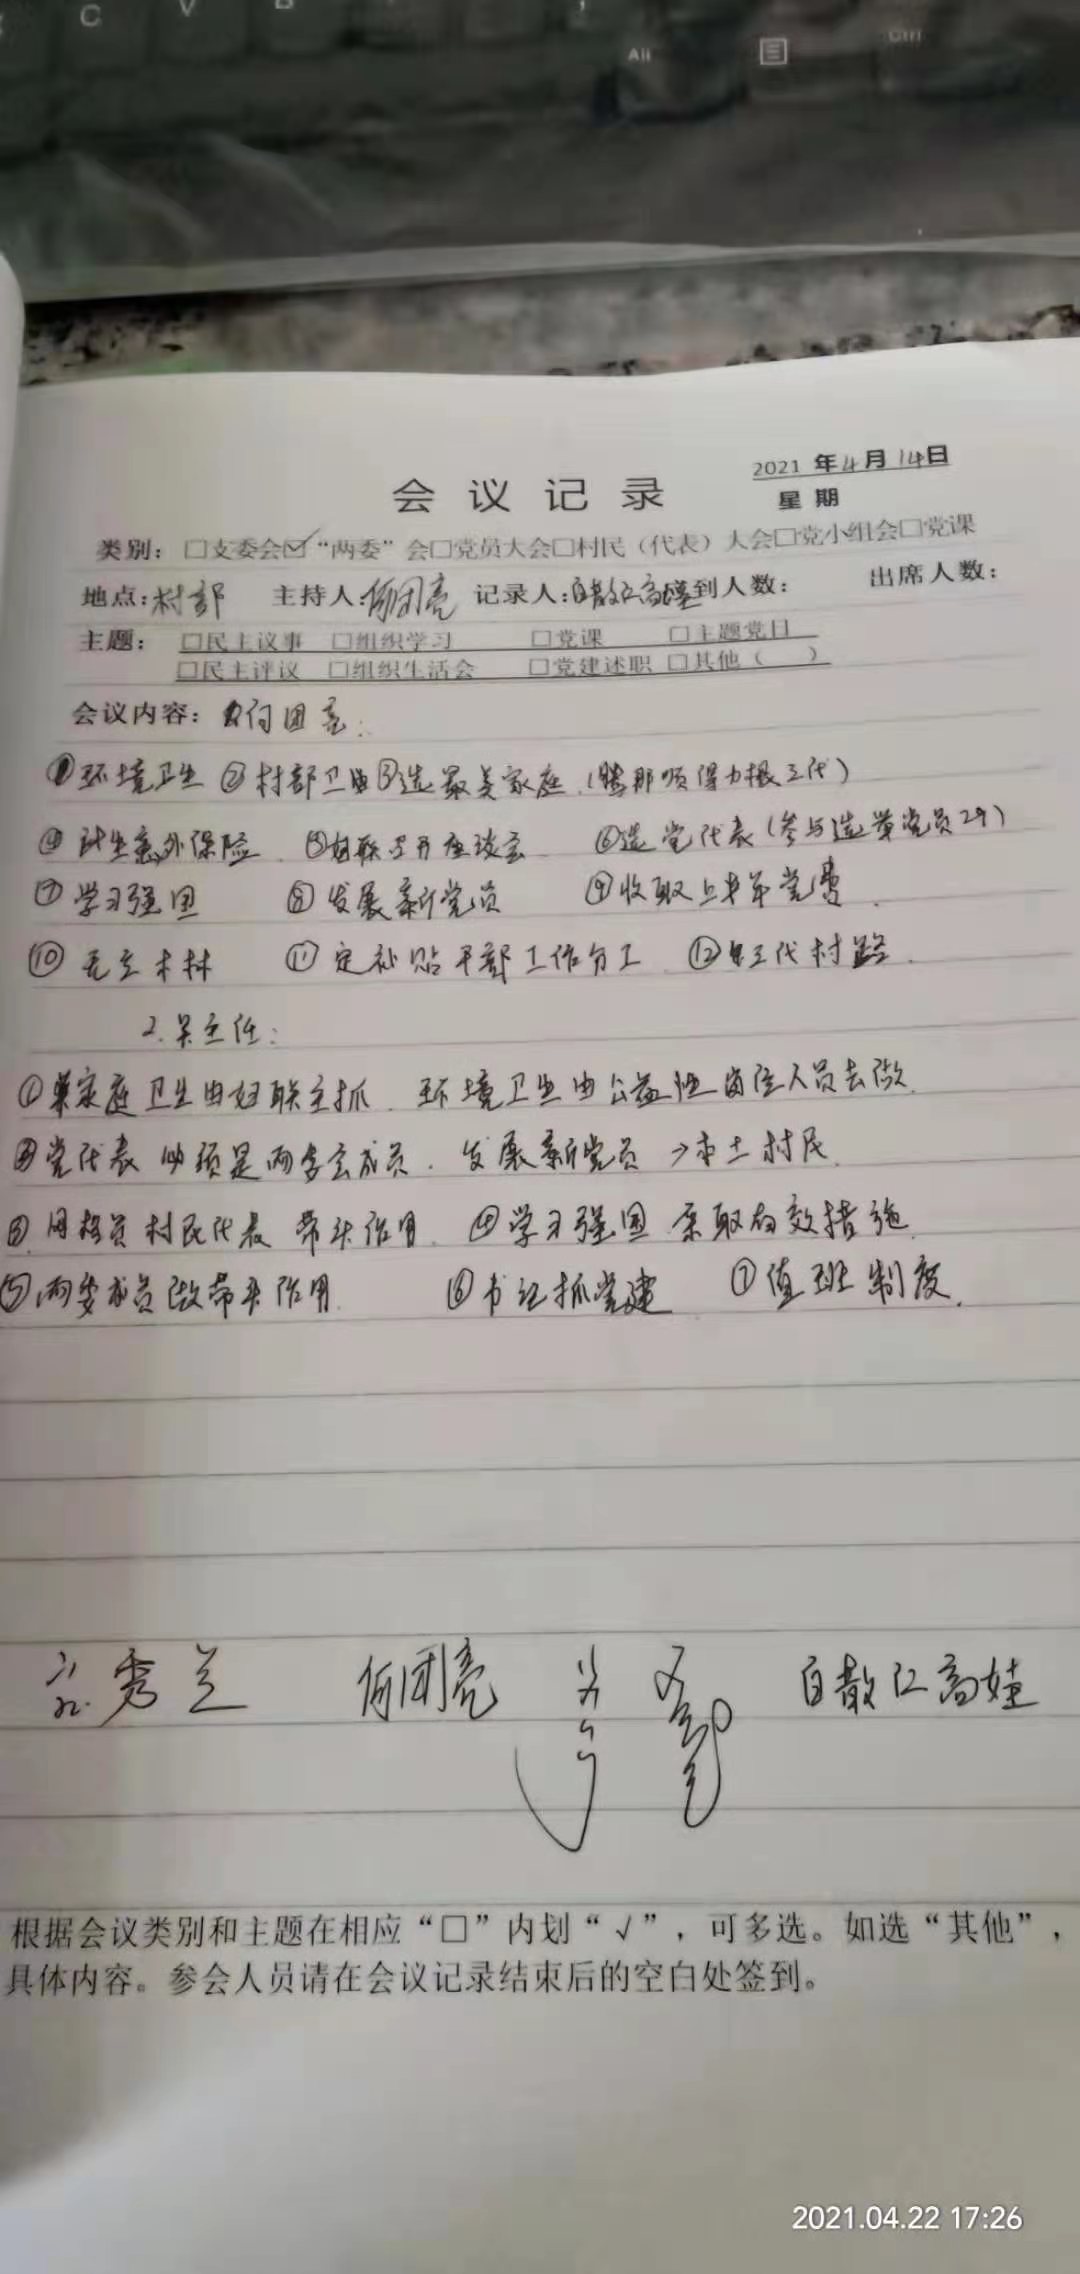 C V B
Alt Ctrl
2021 年4月14日
会 议 记 录
星 期
类别：□支委会☑“两委”会□党员大会□村民（代表）大会□党小组会□党课
地点:村部 主持人:何团亮 记录人:白散仁高娃 到人数： 出席人数：
主题： □民主议事 □组织学习 □党课 □主题党日
□民主评议 □组织生活会 □党建述职 □其他（ ）
会议内容：何团亮：
①环境卫生 ②村部卫生③选最美家庭.(
④计生意外保险 ⑤妇联召开座谈会 ⑥选党代表(参与选举党员2个)
⑦学习强国 ⑧发展新党员 ⑨收取上半年党费.
⑩ 无立木林 ⑪定补贴干部工作分工 ⑫ 三代村路.
2.吴主任:
①家庭卫生由妇联主抓. 环境卫生由公益性岗位人员去做.
②党代表必须是两委会成员. 发展新党员→本土村民.
③网格员村民代表带头作用. ④学习强国采取有效措施.
⑤两委成员做带头作用. ⑥书记抓党建 ⑦值班制度.
秀兰 何团亮 白散仁高娃
根据会议类别和主题在相应“□”内划“√”，可多选。如选“其他”，
具体内容。参会人员请在会议记录结束后的空白处签到。
2021.04.22 17:26